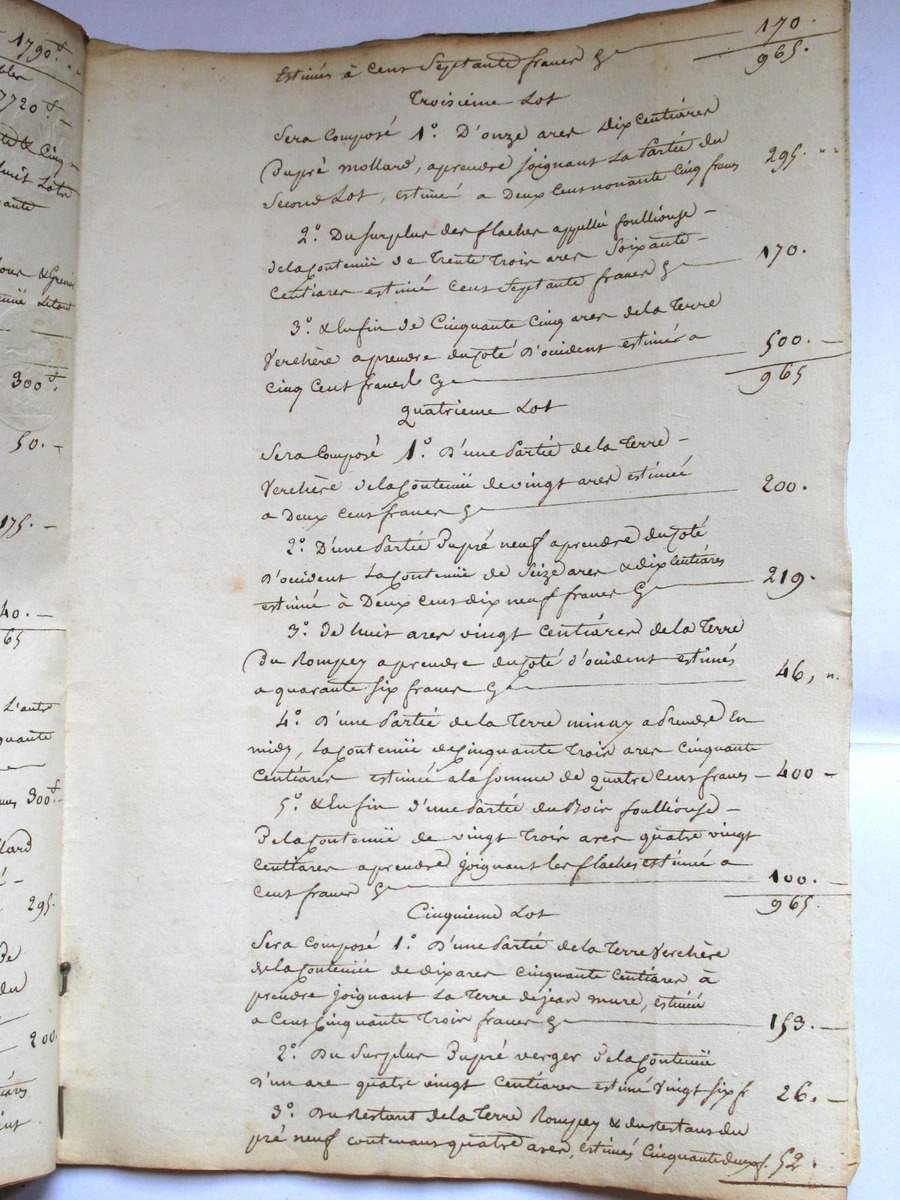 1790.
7720
300
50. -
175. -
40. -
65
L'autre
quante
300
lard
295.
De
du
200
Estimés à Cens Septante francs 170.
965.
Troisieme Lot
Sera Composé 1°. D'onze ares Dix Centiares
Dupré Mollard, aprendre joignant La Partie du
Second Lot, estimé a Deux Cens nonante Cinq francs 295.
2°. Du surplus des flaches appellé foulliouse -
dela Contenüe de Trente Trois ares Soixante -
Centiares estimé Cens Septante francs 170.
3°. & Enfin de Cinquante Cinq ares dela Terre
Verchère aprendre du Coté D'occident estimés a
Cinq Cent francs 500. -
965
Quatrieme Lot
Sera Composé 1°. D'une Partie dela Terre -
Verchère dela Contenüe de vingt ares estimée
a Deux Cens francs 200.
2°. D'une Partie Dupré neuf aprendre du Coté
D'occident La Contenüe de Seize ares & dix Centiares
estimé à Deux Cens dix neuf francs 219.
3°. De huit ares vingt Centiares dela Terre
Du Rompey aprendre du Coté d'occident estimés
a quarante six francs 46,
4°. D'une Partie de la Terre minay a Prendre En
midy, La Contenüe de Cinquante Trois ares Cinquante
Centiares estimée ala somme de quatre Cens francs - 400 -
5°. & Enfin d'une Partie du Bois foulliouse -
De la Contenüe de vingt Trois ares quatre vingt
Centiares aprendre joignant les flaches estimée a
Cens francs 100. -
965.
Cinquieme Lot
Sera Composé 1°. D'une Partie dela Terre Verchère
dela Contenüe de dix ares Cinquante Centiares à
prendre joignant La Terre de jean mure, estimé
a Cens Cinquante Trois francs 153. -
2°. Du Surplus Dupré verger De la Contenüe
D'un are quatre vingt Centiares estimé Vingt six f 26. -
3°. Du Restant dela Terre Rompey & du restans du
pré neuf contenans quatre ares, estimés Cinquante deux f. 52.